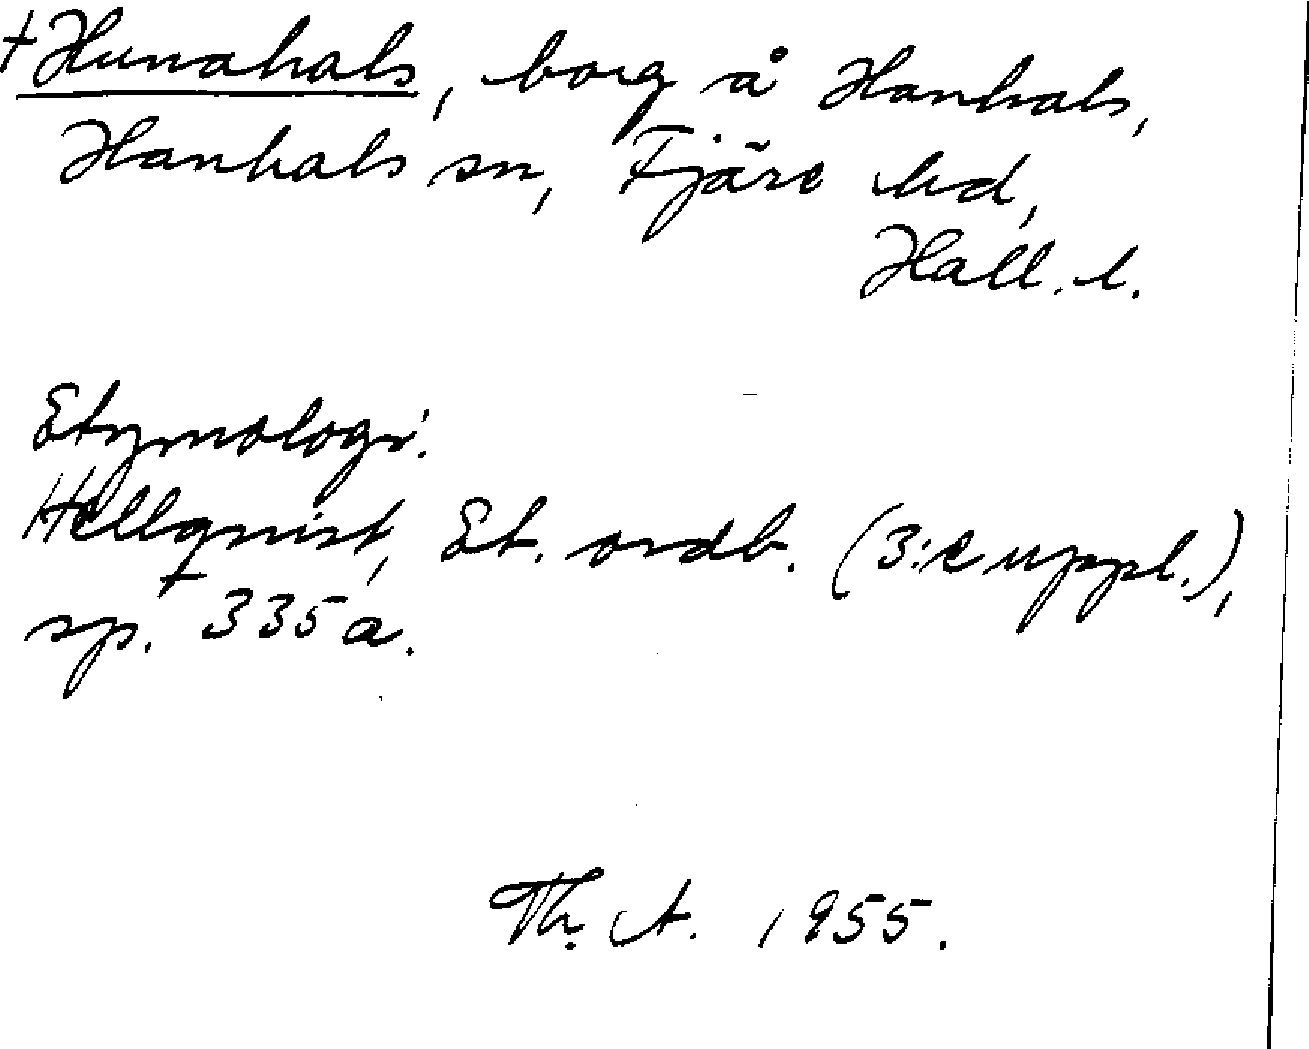 +Hunahals, borg å Hanhals,
Hanhals sn, Fjäre hd,
Hall. l.
Etymologi:
Hellquist, Et. ordb. (3:e uppl.),
sp. 335 a.
Th. A. 1955.